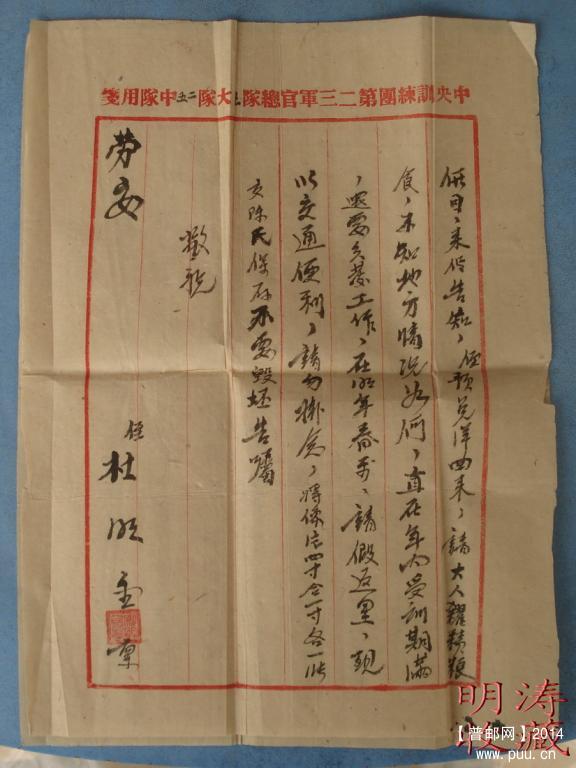 中央訓練團第二三軍官總隊 大隊二五中隊用箋
信用，來信告知，侄預兌洋回來，請大人糴積糧
食，未知地方情況如何，直在年內受訓期滿
，還要分發工作，在明年春季，請假返里，現
以交通便利，請勿掛念，將像片四寸合一寸各一張
交陈氏保存不要毀坯告囑
敬祝
劳安
侄 杜 明 金 稟
明涛
收藏
【普邮网】2014
www.puu.cn